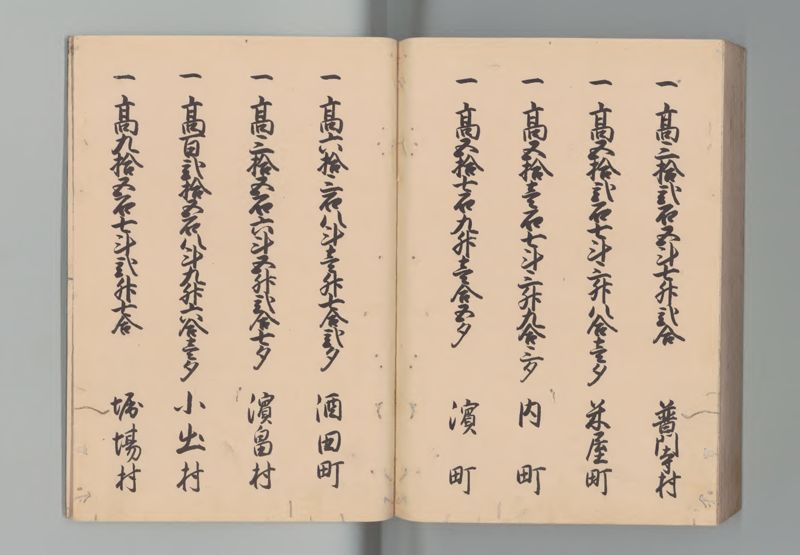 一 高三拾弐石五斗七升弐合 普門寺村
一 高五拾弐石七斗三升八合壱夕 米屋町
一 高五拾壱石七斗三升九合三夕 内町
一 高五拾七石九升壱合五夕 濱町
一 高六拾三石八斗壱升七合弐夕 酒田町
一 高三拾五石六斗五升弐合七夕 濱畠村
一 高百弐拾五石八斗九升六合壱夕 小出村
一 高九拾五石七斗弐升七合 堀場村